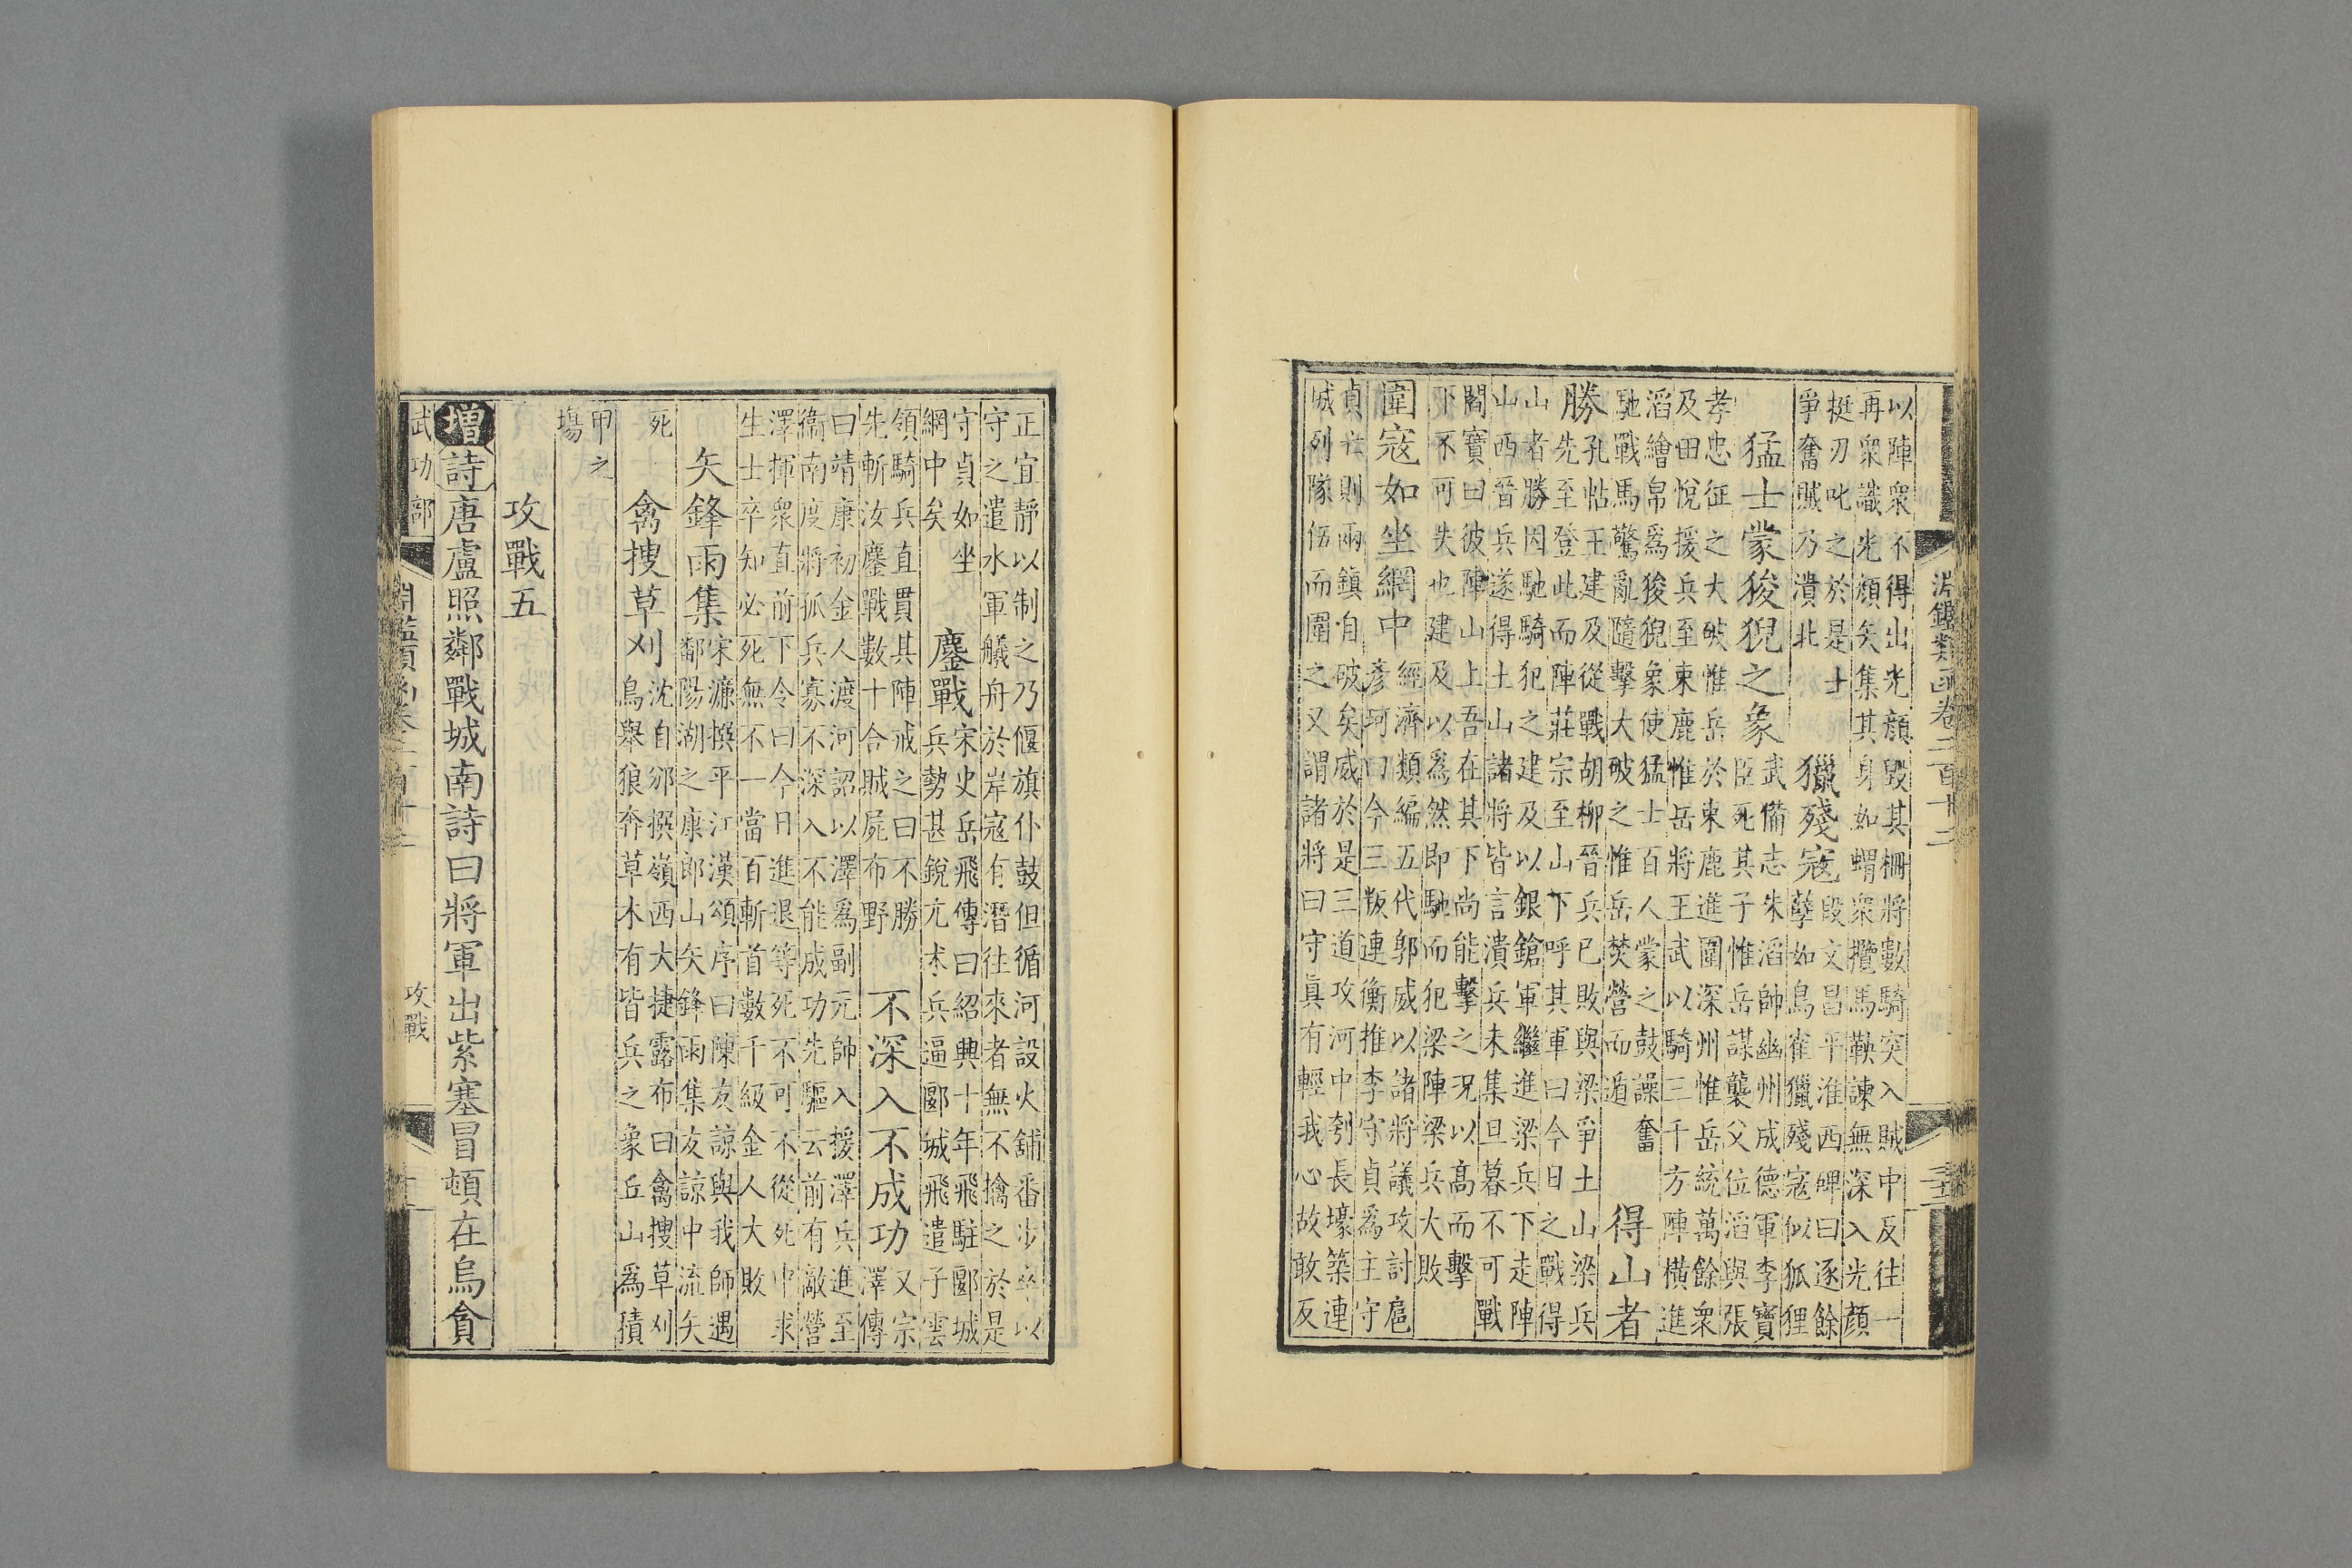 淵鑑類函卷二百十二
以陣衆不得出光顏毀其柵將數騎突入賊中反往一
再衆識光顏矢集其身如蝟衆攬馬鞅諫無深入光顏
挺刃叱之於是士
爭奮賊乃潰北
獵殘寇
段文昌平淮西碑曰逐餘
孽如鳥雀獵殘寇似狐狸
猛士蒙狻猊之象
武備志朱滔帥幽州成德軍李寶
臣死其子惟岳謀襲父位滔與張
孝忠征之大破惟岳於東鹿進圍深州惟岳統萬餘衆
及田悅援兵至東鹿惟岳將王武以騎三千方陣橫進
滔繪帛爲狻猊象使猛士百人蒙之鼓譟奮
馳戰馬驚亂隨擊大破之惟岳焚營而遁
得山者
勝
孔帖王建及從戰胡柳晉兵已敗與梁爭土山梁兵
先至登此而陣莊宗至山下呼其軍曰今日之戰得
山者勝因馳騎犯之建及以銀鎗軍繼進梁兵下走陣
山西晉兵遂得土山諸將皆言潰兵未集旦暮不可戰
閻寶曰彼陣山上吾在其下尚能擊之況以高而擊
下不可失也建及以爲然即馳而犯梁陣梁兵大敗
圍寇如坐網中
經濟類編五代郭威以諸將議攻討扈
彥珂曰今三叛連衡推李守貞爲主守
貞亡則兩鎮自破矣威於是三道攻河中刳長壕築連
城列隊伍而圍之又謂諸將曰守真有輕我心故敢反
正宜靜以制之乃偃旗仆鼓但循河設火鋪番步卒以
守之遣水軍艤舟於岸寇有潛往來者無不擒之於是
守貞如坐
網中矣
鏖戰
宋史岳飛傳曰紹興十年飛駐郾城
兵勢甚銳亢朮兵逼郾城飛遣子雲
領騎兵直貫其陣戒之曰不勝
先斬汝鏖戰數十合賊屍布野
不深入不成功
又宗
澤傳
曰靖康初金人渡河詔以澤爲副元帥入援澤兵進至
衞南度將孤兵寡不深入不能成功先驅云前有敵營
澤揮衆直前下令曰今日進退等死不可不從死中求
生士卒知必死無不一當百斬首數千級金人大敗
矢鋒雨集
宋濂撰平江漢頌序曰陳友諒與我師遇
鄱陽湖之康郎山矢鋒雨集友諒中流矢
死
禽捜草刈
沈自邠撰嶺西大捷露布曰禽捜草刈
鳥舉狼奔草木有皆兵之象丘山爲積
甲之
塲
攻戰五
增詩唐盧照鄰戰城南詩曰將軍出紫塞冒頓在烏貪
武功部
攻戰